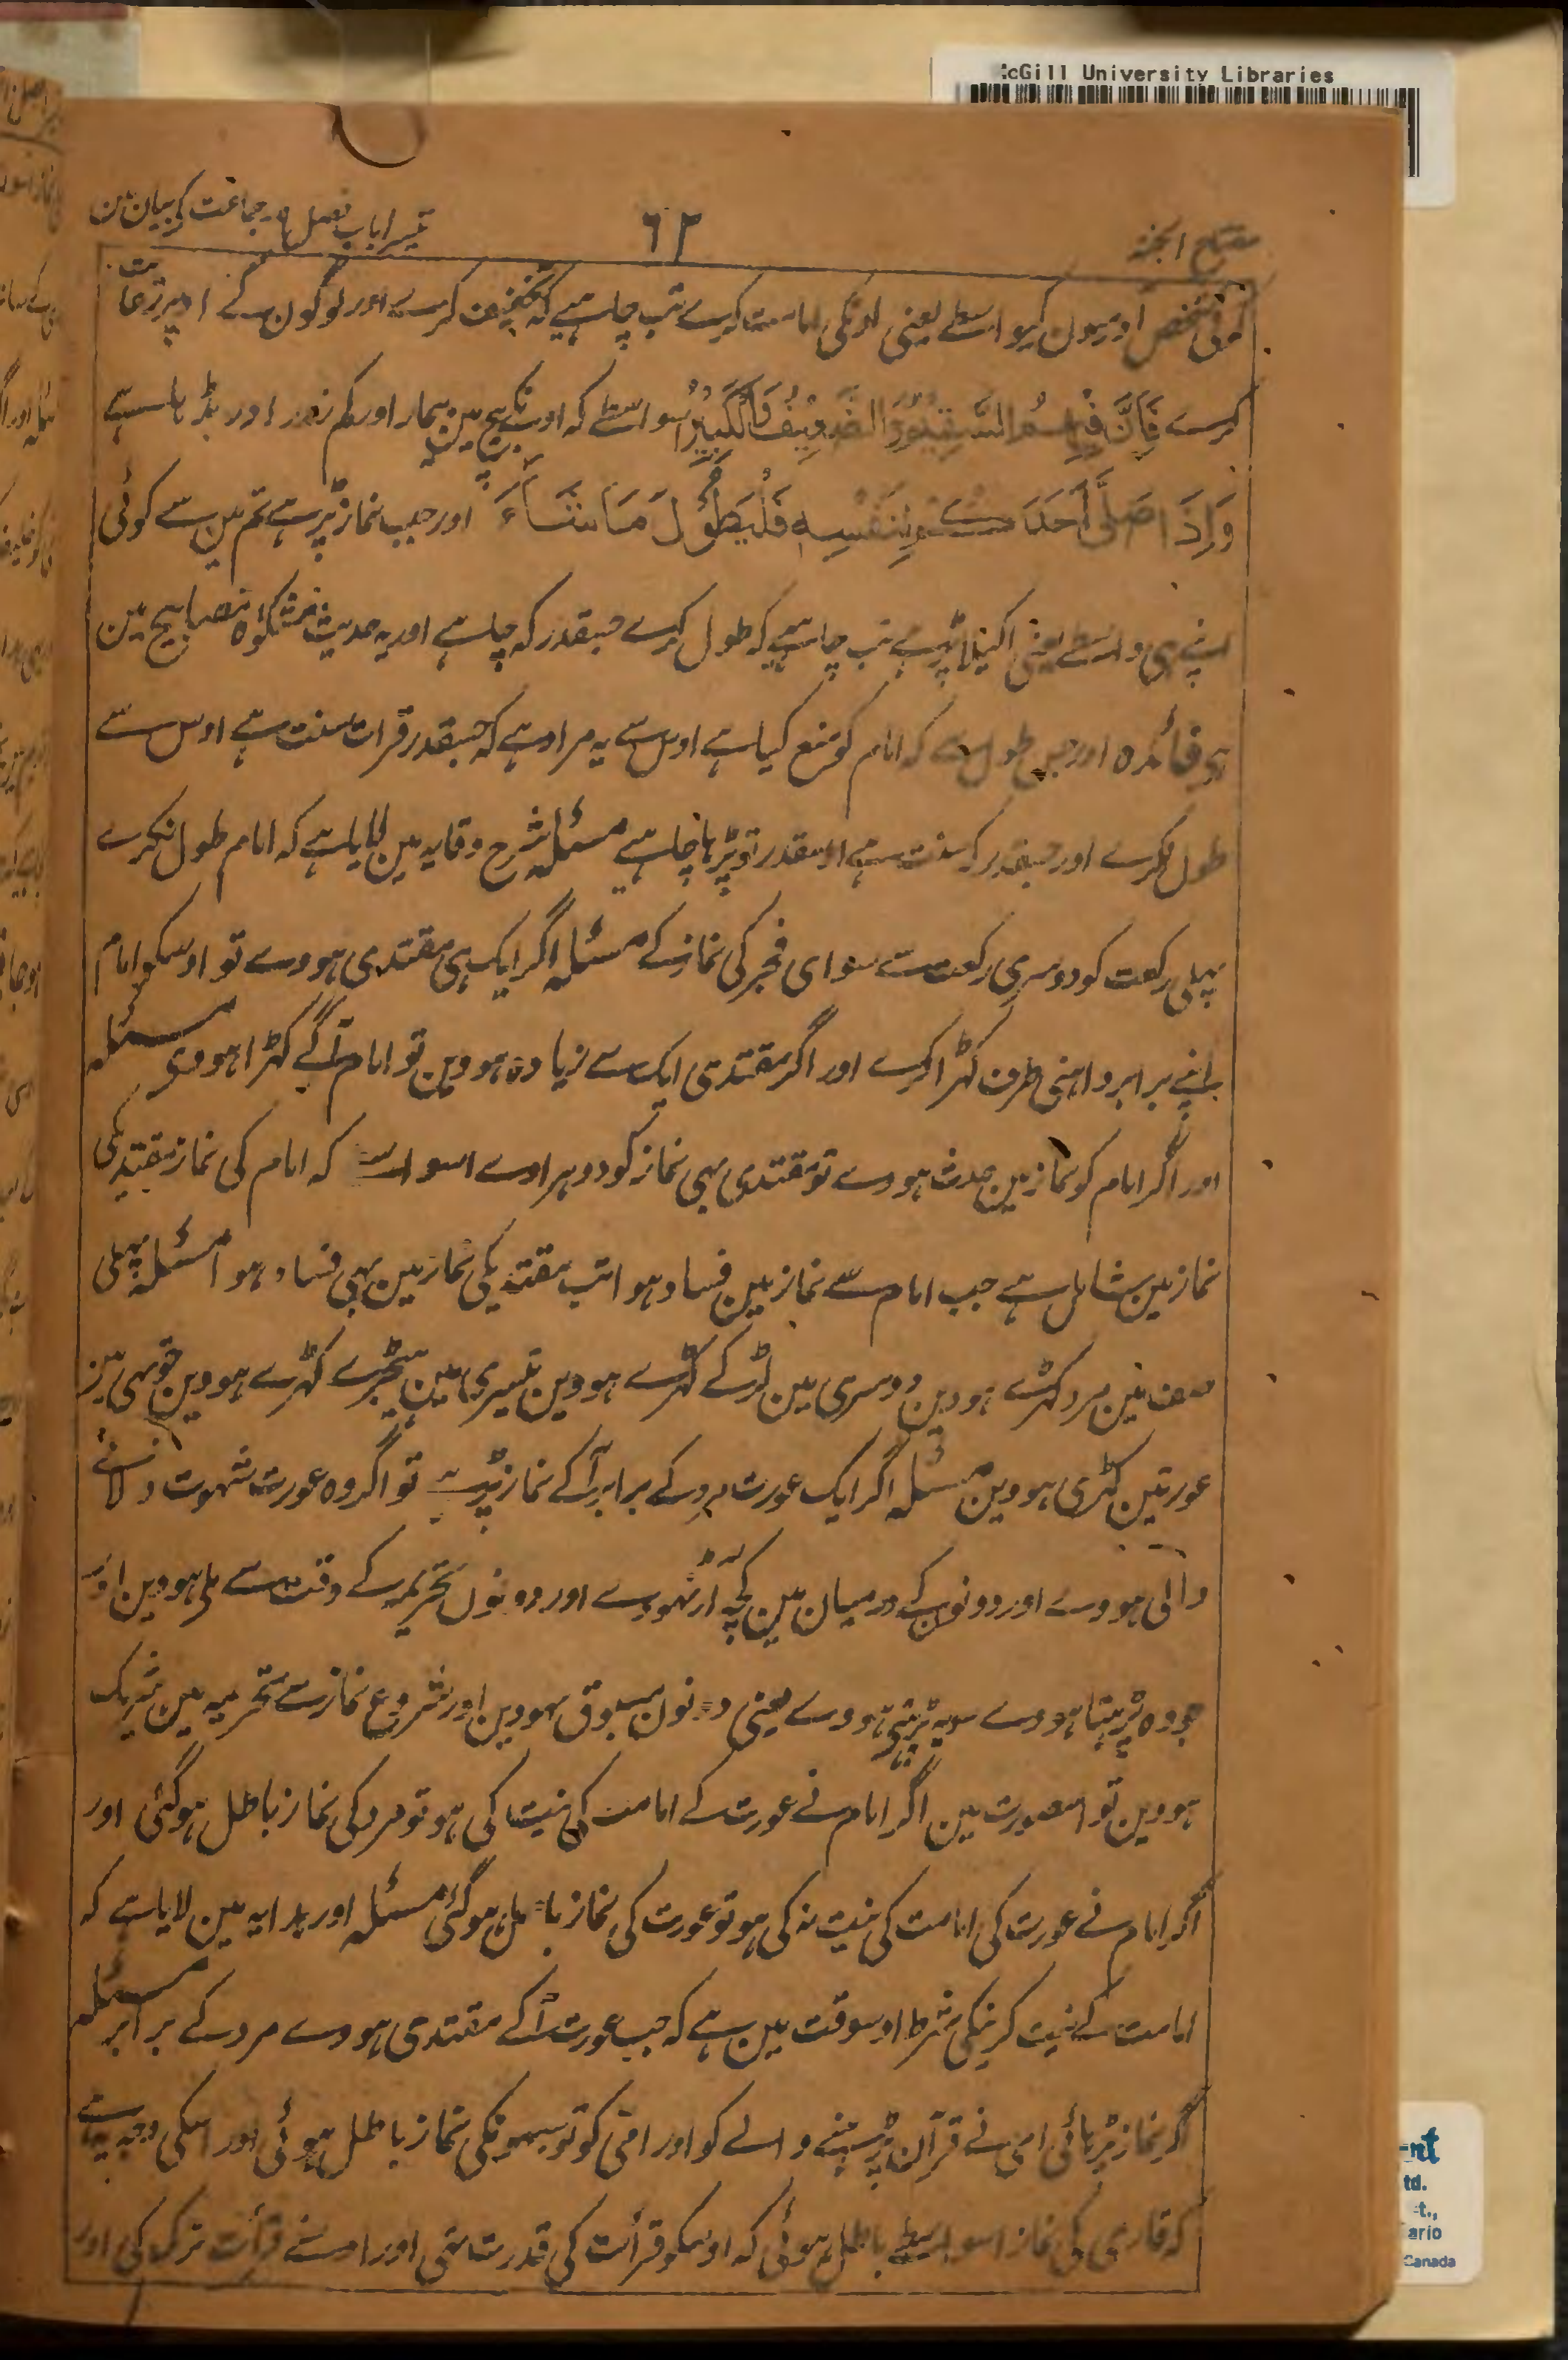 McGill University Libraries
مفتاح الجنۃ
۶۲
تیسرا باب فصل ۹ جماعت کی بیان مین
کوئی شخص اورون کیواسطے یعنی اونکی امامت کرے تب چاہیے کہ تخفیف کرے اور لوگون کے اوپر رعایت
کرے فَاِنَّ فِيْهِمُ السَّقِيْمَ وَالضَّعِيْفَ وَالْكَبِيْرَ اسواسطے کہ اونکے بیچ مین بیمار اور کم زور اور بڈہا ہے
وَاِذَا صَلّٰى اَحَدُكُمْ لِنَفْسِهٖ فَلْيُطَوِّلْ مَا شَاءَ اور جب نماز پڑہے تم مین سے کوئی
اپنے ہی واسطے یعنی اکیلا پڑہے تب چاہیے کہ طول کرے جسقدر کہ چاہے اور یہ حدیث مشکوٰۃ مصابیح مین
ہی فائدہ اور جس طول سے کہ امام کو منع کیا ہے اوس سے یہ مراد ہے کہ جسقدر قرات سنت ہے اوس سے
طول نکرے اور جسقدر کہ سنت ہے اوسقدر تو پڑہا چاہیے مسئلہ شرح وقایہ مین لایا ہے کہ امام طول نکرے
پہلی رکعت کو دوسری رکعت سے سوای فجر کی نماز کے مسئلہ اگر ایک ہی مقتدی ہووے تو اوسکو امام
اپنے برابر داہنی طرف کہڑا کرے اور اگر مقتدی ایک سے زیادہ ہووین تو امام آگے کہڑا ہووی مسئلہ
اور اگر امام کو نماز مین حدث ہووے تو مقتدی بہی نماز کو دوہراوے اسواسطے کہ امام کی نماز مقتدیکی
نماز مین شامل ہے جب امام سے نماز مین فساد ہوا تب مقتدیکی نماز مین بہی فساد ہوا مسئلہ پہلی
صف مین مرد کہڑے ہووین دوسری مین لڑکے کہڑے ہووین تیسری مین ہیجڑے کہڑے ہووین چوتہی مین
عورتین کہڑی ہووین مسئلہ اگر ایک عورت مرد کے برابر آکے نماز پڑہے تو اگر وہ عورت شہوت دلانے
والی ہووے اور دونون کے درمیان مین کچہ آڑ نہووے اور دونون تحریمہ کے وقت سے ملی ہووین اور
جو وہ پڑہتا ہووے سو یہ پڑہتی ہووے یعنی دونون مسبوق نہووین اور شروع نماز سے تحریمہ مین شریک
ہووین تو اسصورت مین اگر امام نے عورت کے امامت کی نیت کی ہو تو مرد کی نماز باطل ہوگئی اور
اگر امام نے عورت کی امامت کی نیت نہ کی ہو تو عورت کی نماز باطل ہوگئی مسئلہ اور ہدایہ مین لایا ہے کہ
امامت کے نیت کرنیکی شرط اوسوقت مین ہے کہ جب عورت آکے مقتدی ہووے مرد کے برابر مسئلہ
اگر نماز پڑہائی امی نے قرآن پڑہنے والے کو اور امی کو تو سبہونکی نماز باطل ہوئی اور اسکی وجہ یہ ہے
کہ قاری کی نماز اسواسطے باطل ہوئی کہ اوسکو قرأت کی قدرت تہی اور اوسنے قرأت ترک کی اور
nt
td.
t.,
ario
Canada